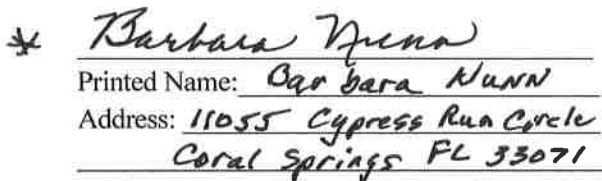 * Barbara Nunn
Printed Name: Barbara NUNN
Address: 11055 Cypress Run Circle
Coral Springs FL 33071